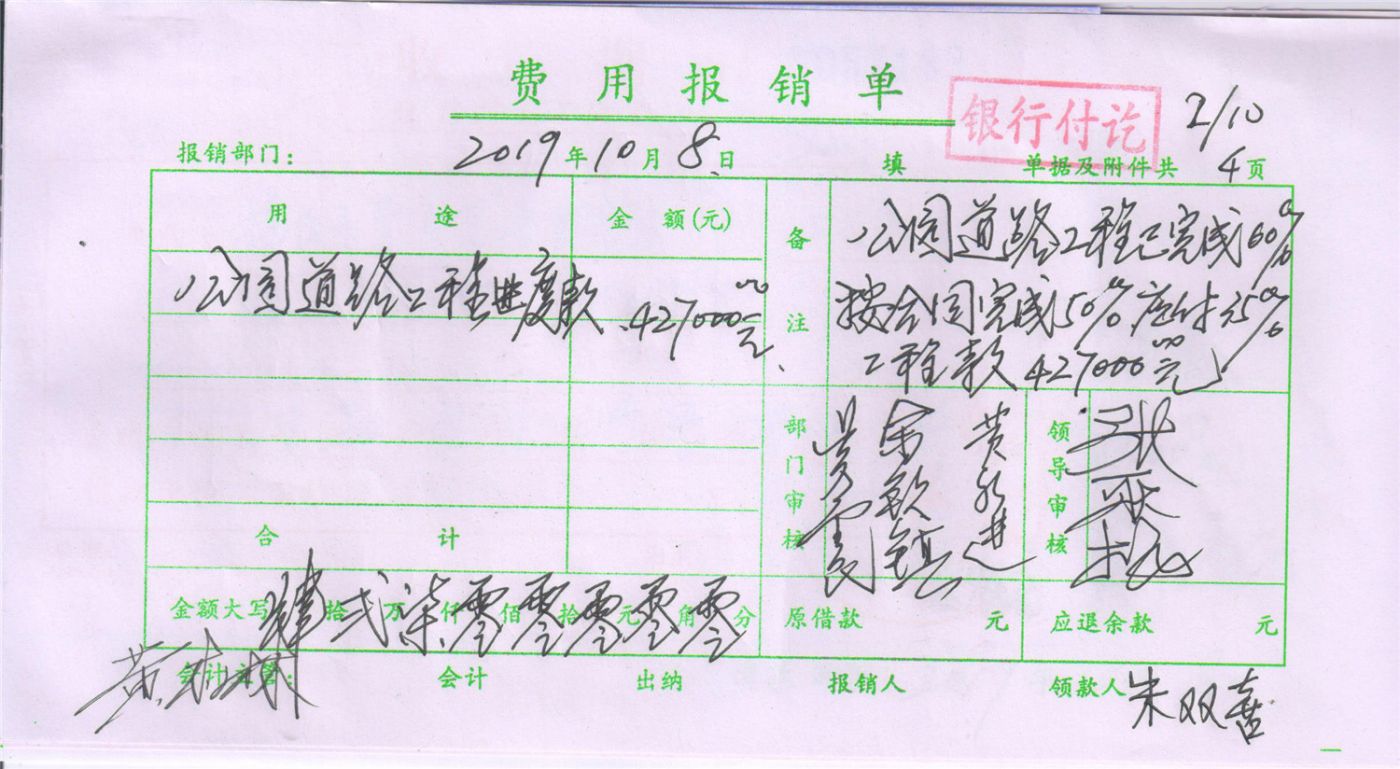 费用报销单
银行付讫
2/10
报销部门： 2019年10月8日 填 单据及附件共 4页
用途 金额(元) 备注
公园道路工程进度款 427000元
公园道路工程已完成60%
按合同完成50%应付35%
工程款427000元
部门审核
余敏镇
黄永进
领导审核
合计
金额大写 肆拾贰万柒仟零佰零拾零元零角零分 原借款 元 应退余款 元
会计主管： 会计 出纳 报销人 领款人 朱双喜